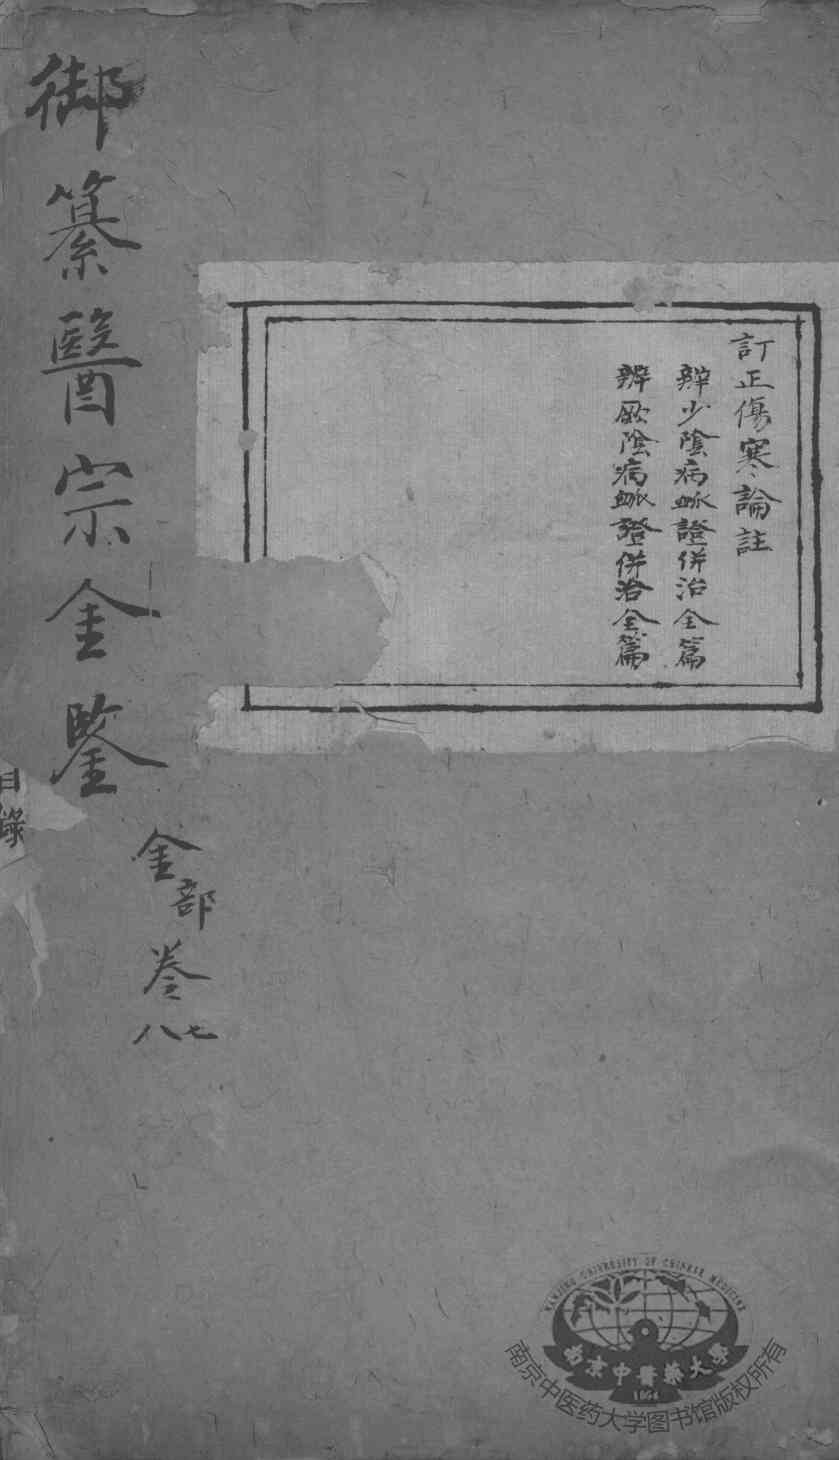 訂正傷寒論註
辨少陰病脉證併治全篇
辨厥陰病脉證併治全篇
御纂醫宗金鑒
金部
卷
七
八
目錄
NANJING UNIVERSITY OF CHINESE MEDICINE
南京中醫藥大學
1954
南京中医药大学图书馆版权所有